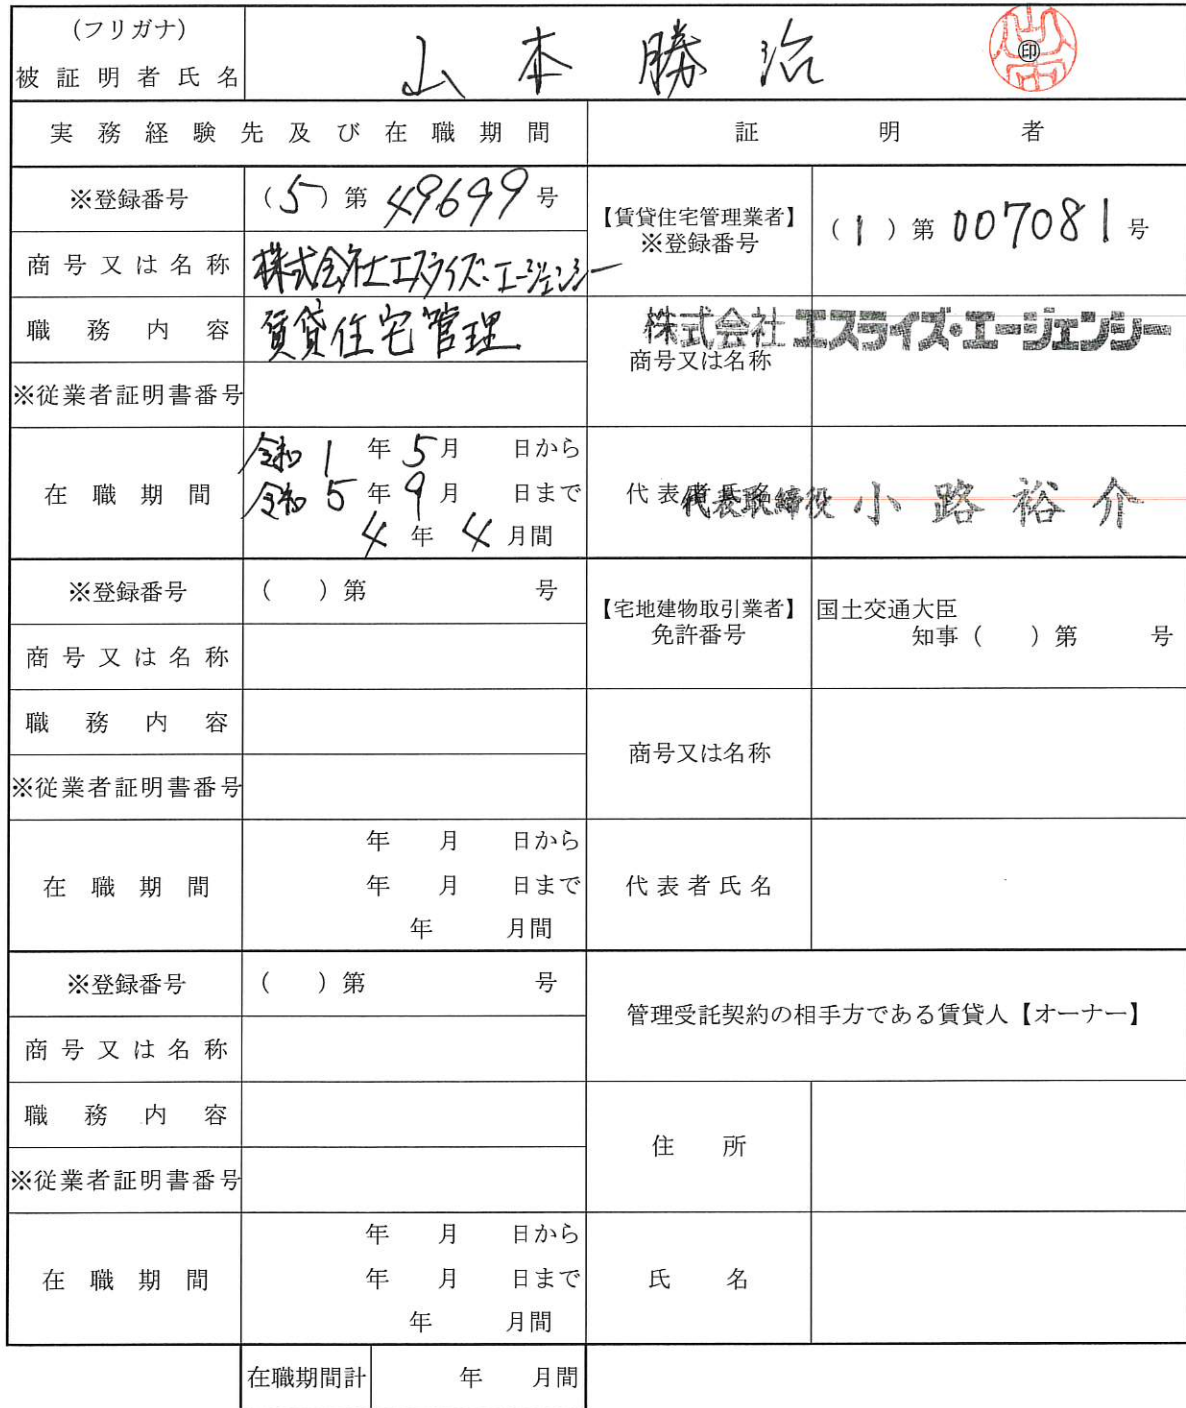 (フリガナ)
被証明者氏名 山本勝治 ㊞
実務経験先及び在職期間 証明者
※登録番号 (5)第49699号 【賃貸住宅管理業者】※登録番号 (1)第007081号
商号又は名称 株式会社エスライズ・エージェンシー
職務内容 賃貸住宅管理 商号又は名称 株式会社エスライズ・エージェンシー
※従業者証明書番号
在職期間 令和1年5月 日から
令和5年9月 日まで 代表者氏名 代表取締役 小路裕介
4年4月間
※登録番号 ( )第 号 【宅地建物取引業者】免許番号 国土交通大臣
知事( )第 号
商号又は名称
職務内容 商号又は名称
※従業者証明書番号
在職期間 年 月 日から
年 月 日まで 代表者氏名
年 月間
※登録番号 ( )第 号 管理受託契約の相手方である賃貸人【オーナー】
商号又は名称
職務内容 住所
※従業者証明書番号
在職期間 年 月 日から
年 月 日まで 氏名
年 月間
在職期間計 年 月間